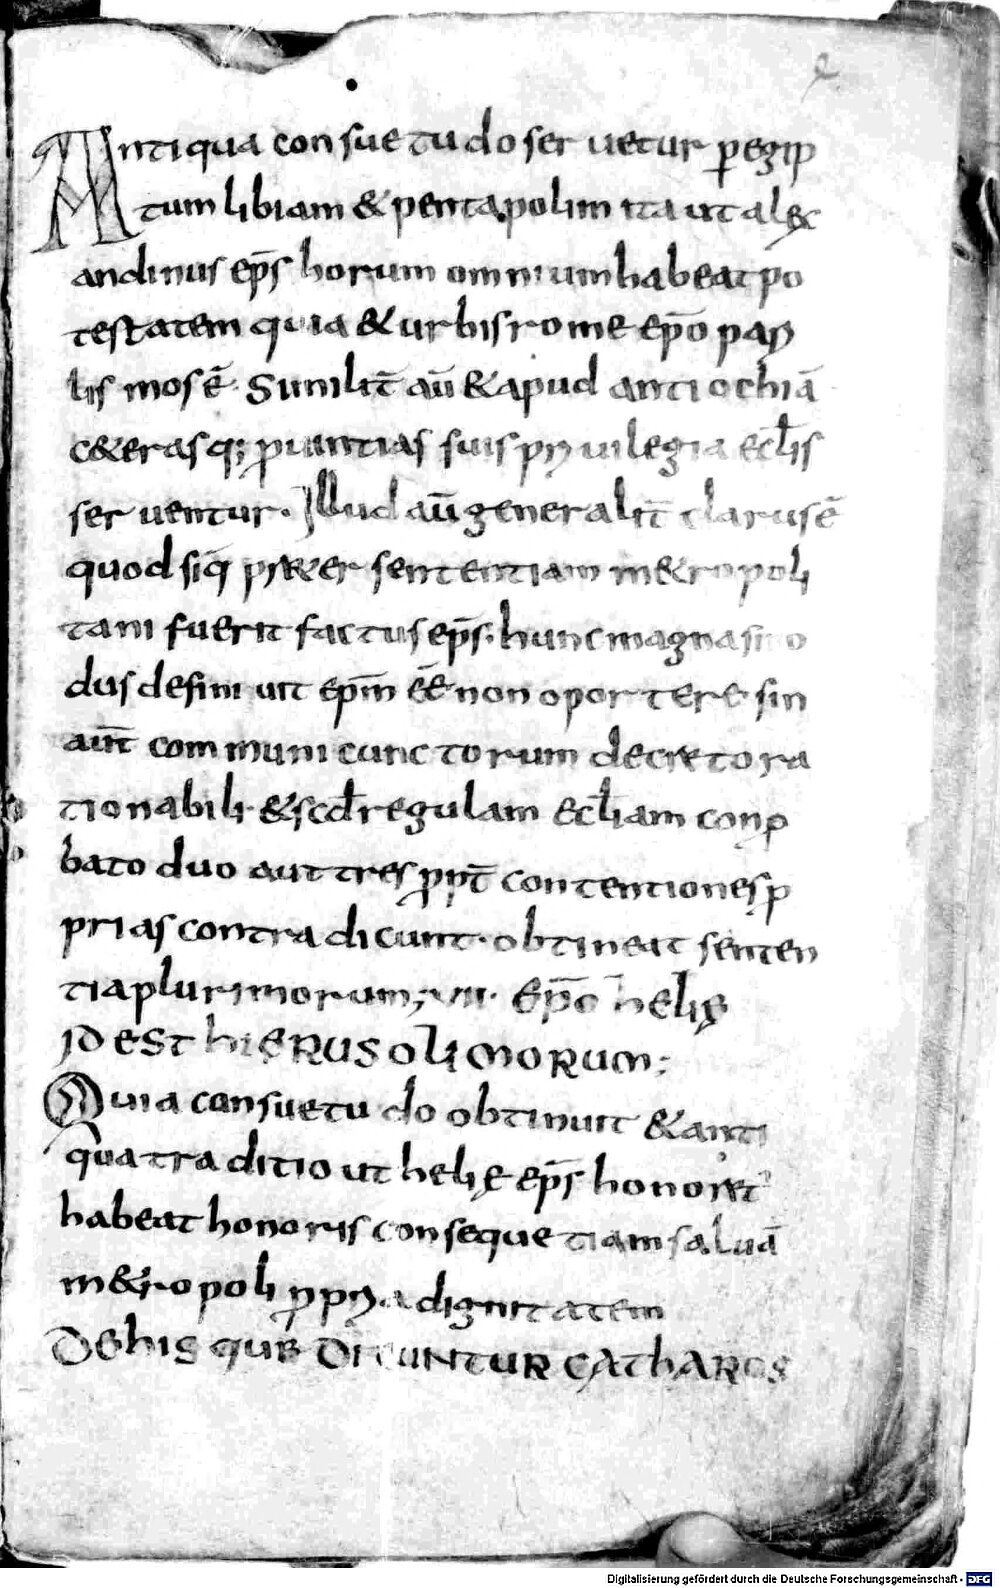 Antiqua consuetudo seruetur ꝑ egip
tum libiam & pentapolim ita ut al&x
andinus ep̄s horum omnium habeat po
testatem quia & urbis rome ep̄o pari
lis mos ē. Similit̄ aū & apud antiochiā
c&erasq; ꝓuintias suis priuilegia eccl̄is
seruentur. Illud aū generalit̄ clarus ē
quod siq̄ pr&er sententiam m&ropoli
tani fuerit factus ep̄s. hunc magna sino
dus definiuit ep̄m ēē non oportere sin
aut̄ communi cunctorum decreto ra
tionabili & scd̄ regulam eccl̄iam conꝓ
bato duo aut tres ꝓpt̄ contentiones ꝓ
prias contradicunt. obtineat senten
tia plurimorum; VII. Ep̄o helię
IDEST hIERUSOLIMORUM;
Quia consuetudo obtinuit & anti
qua traditio ut helię ep̄s honoret̄
habeat honoris consequetiam saluā
m&ropoli ꝓpria dignitatem
DEhIS QUE DICUNTUR CAThAROS
Digitalisierung gefördert durch die Deutsche Forschungsgemeinschaft - DFG